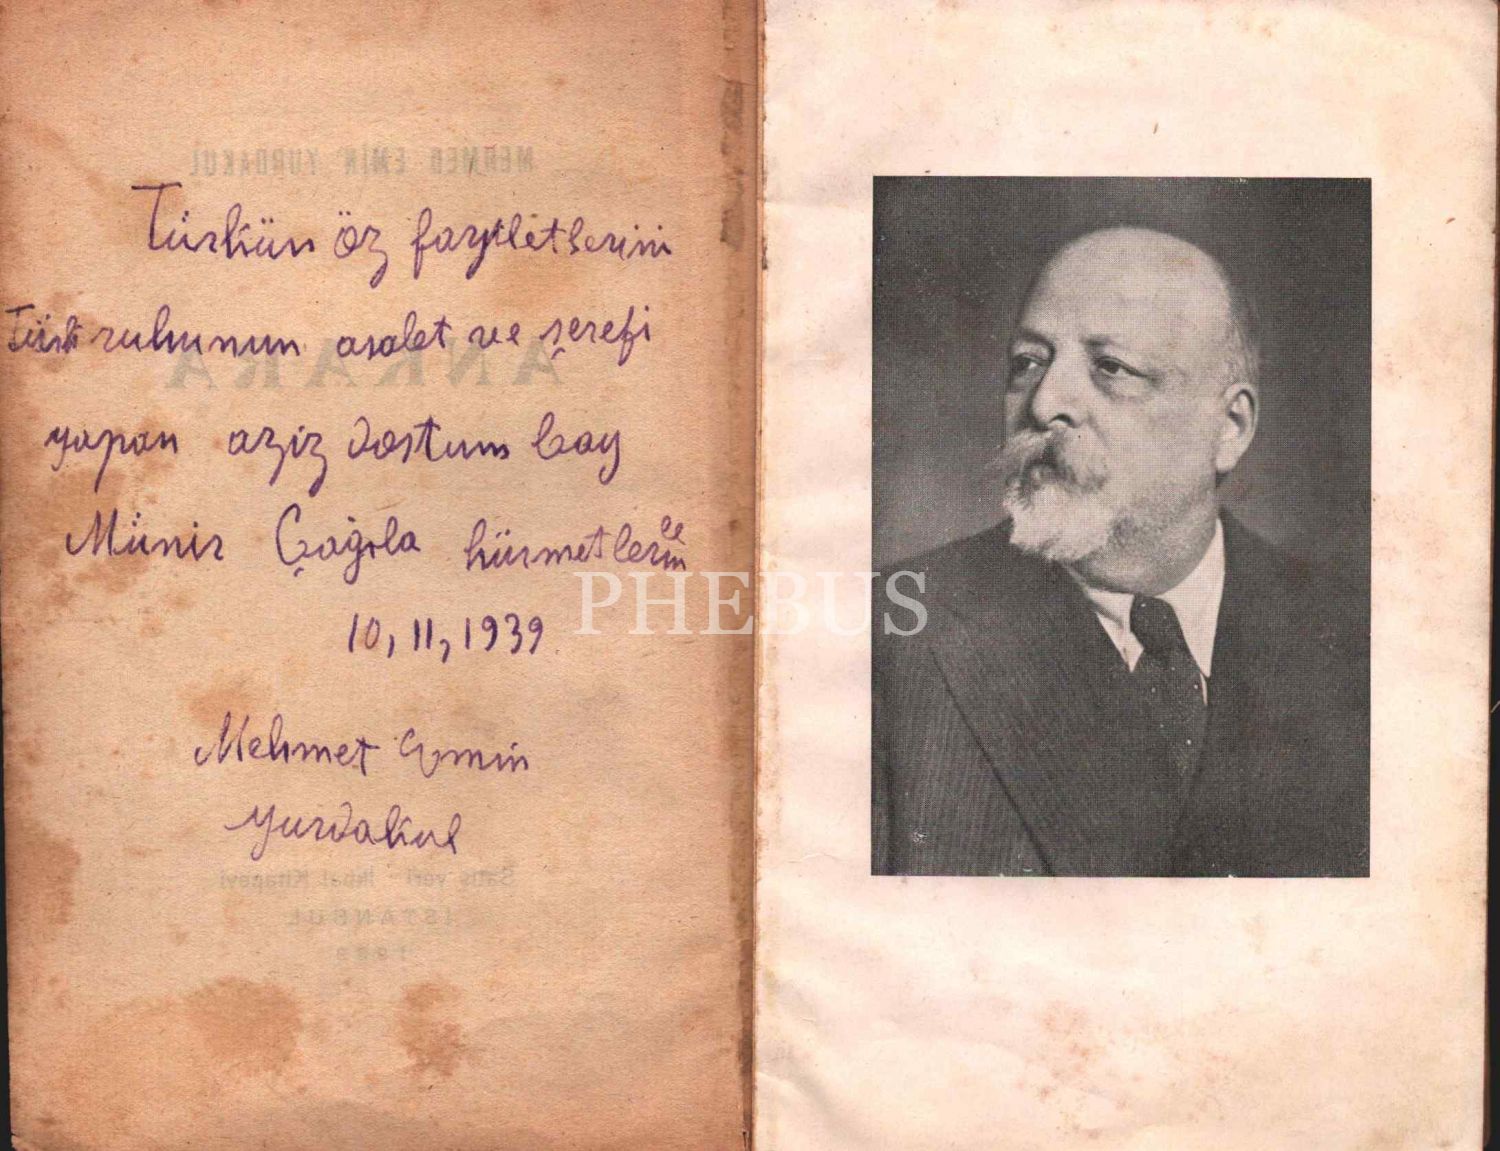 MEHMED EMİN YURDAKUL
Türkün öz faziletlerini
Türk ruhunun asalet ve şerefi
ANKARA
yapan aziz dostum bay
Münir Çağıla hürmetlerimle
10, 11, 1939
Mehmet Emin
Yurdakul
Satış yeri - İkbal Kitapevi
İSTANBUL
1939
PHEBUS